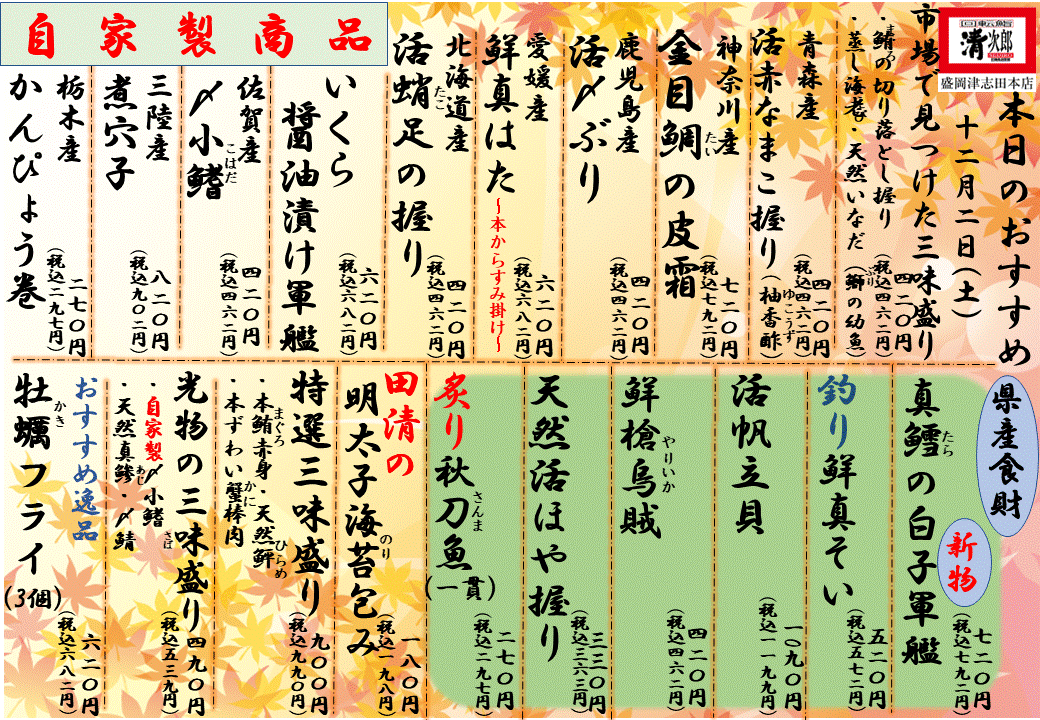 回転鮨
清次郎
盛岡津志田本店
本日のおすすめ
十二月二日(土)
市場で見つけた三味盛り
・鯖の切り落とし握り
・蒸し海老・天然いなだ(鰤の幼魚)
ぶり
四二〇円
(税込四六二円)
青森産
活赤なまこ握り(柚香酢)
ゆこうず
四二〇円
(税込四六二円)
神奈川産
金目鯛の皮霜
たい
七二〇円
(税込七九二円)
鹿児島産
活〆ぶり
四二〇円
(税込四六二円)
愛媛産
鮮真はた~本からすみ掛け~
六二〇円
(税込六八二円)
北海道産
活蛸足の握り
たこ
四二〇円
(税込四六二円)
自家製商品
いくら
醤油漬け軍艦
六二〇円
(税込六八二円)
佐賀産
〆小鰭
こはだ
四二〇円
(税込四六二円)
三陸産
煮穴子
八二〇円
(税込九〇二円)
栃木産
かんぴょう巻
二七〇円
(税込二九七円)
県産食財
新物
真鱈の白子軍艦
たら
七二〇円
(税込七九二円)
釣り鮮真そい
五二〇円
(税込五七二円)
活帆立貝
一〇九〇円
(税込一一九九円)
鮮槍烏賊
やりいか
四二〇円
(税込四六二円)
天然活ほや握り
三三〇円
(税込三六三円)
炙り秋刀魚(一貫)
さんま
二七〇円
(税込二九七円)
田清の
明太子海苔包み
のり
一八〇円
(税込一九八円)
特選三味盛り
・本鮪赤身・天然鮃
まぐろ
ひらめ
・本ずわい蟹棒肉
かに
九〇〇円
(税込九九〇円)
光物の三味盛り
・自家製〆小鰭
・天然真鯵・〆鯖
あじ
さば
四九〇円
(税込五三九円)
おすすめ逸品
牡蠣フライ(3個)
かき
六二〇円
(税込六八二円)